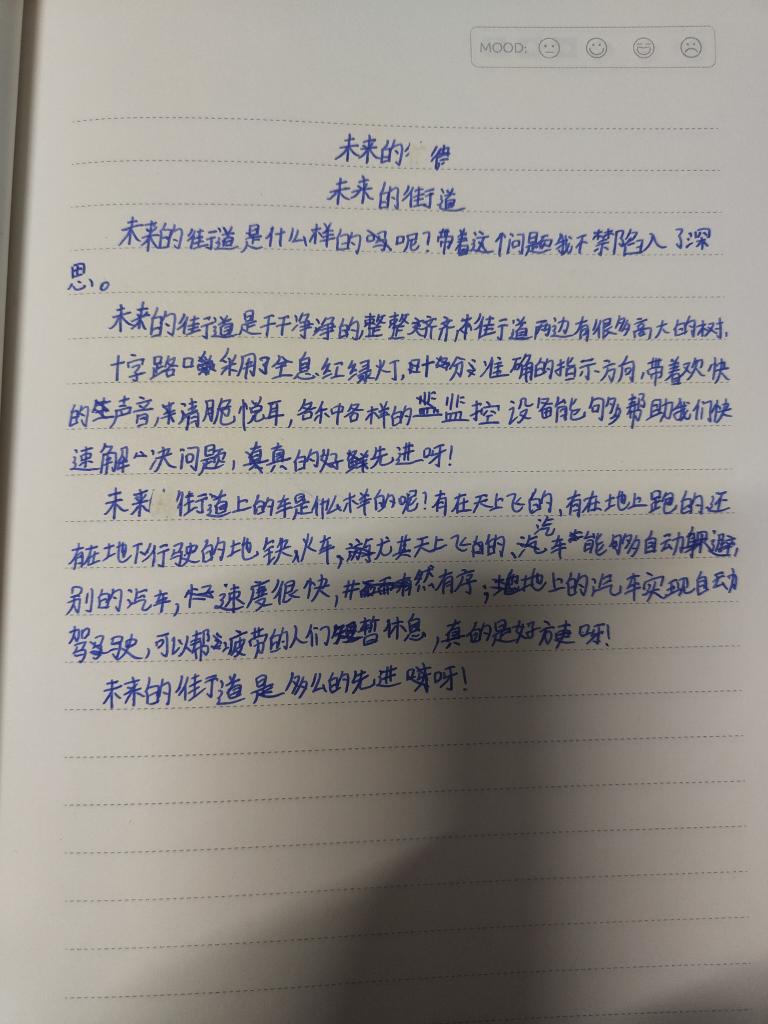 MOOD:
未来的
未来的街道
未来的街道是什么样的呢?带着这个问题我不禁陷入了深
思。
未来的街道是干干净净的,整整齐齐,街道两边有很多高大的树.
十字路口采用了全息红绿灯,十分准确的指示方向,带着欢快
的声音,清脆悦耳,各种各样的监控设备能够帮助我们快
速解决问题,真的好先进呀!
未来街道上的车是什么样的呢?有在天上飞的,有在地上跑的还
有在地下行驶的地铁,火车,尤其天上飞的汽车能够自动躲避,
别的汽车,速度很快,井然有序;地上的汽车实现自动
驾驶,可以帮疲劳的人们暂休息,真的是好方便呀!
未来的街道是多么的先进呀!